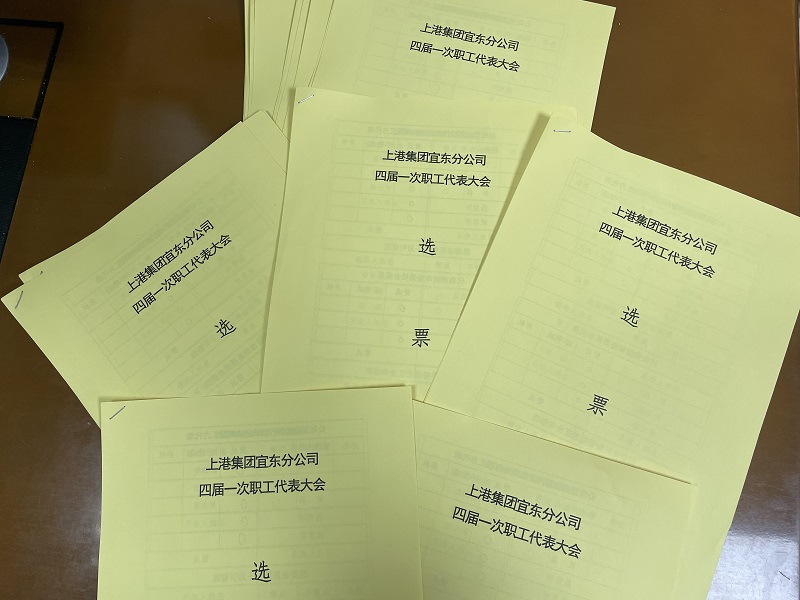 上港集团宜东分公司
四届一次职工代表大会
上港集团宜东分公司
四届一次职工代表大会
选
票
上港集团宜东分公司
四届一次职工代表大会
选
票
上港集团宜东分公司
四届一次职工代表大会
选
上港集团宜东分公司
四届一次职工代表大会
选
上港集团宜东分公司
四届一次职工代表大会